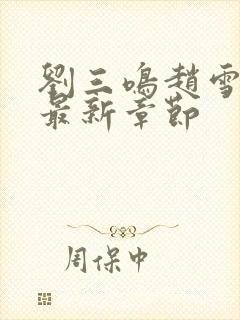 劉三鳴趙雪
最新章節
周保中